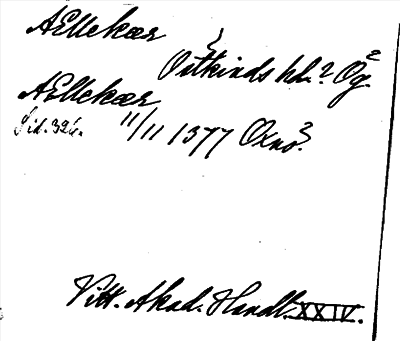 AEllekær
Östkinds hd.? Ög.
AEllekær
Sid. 326. 11/11 1377 Oxnö.
Vitt. Akad. Handl. XXIV.